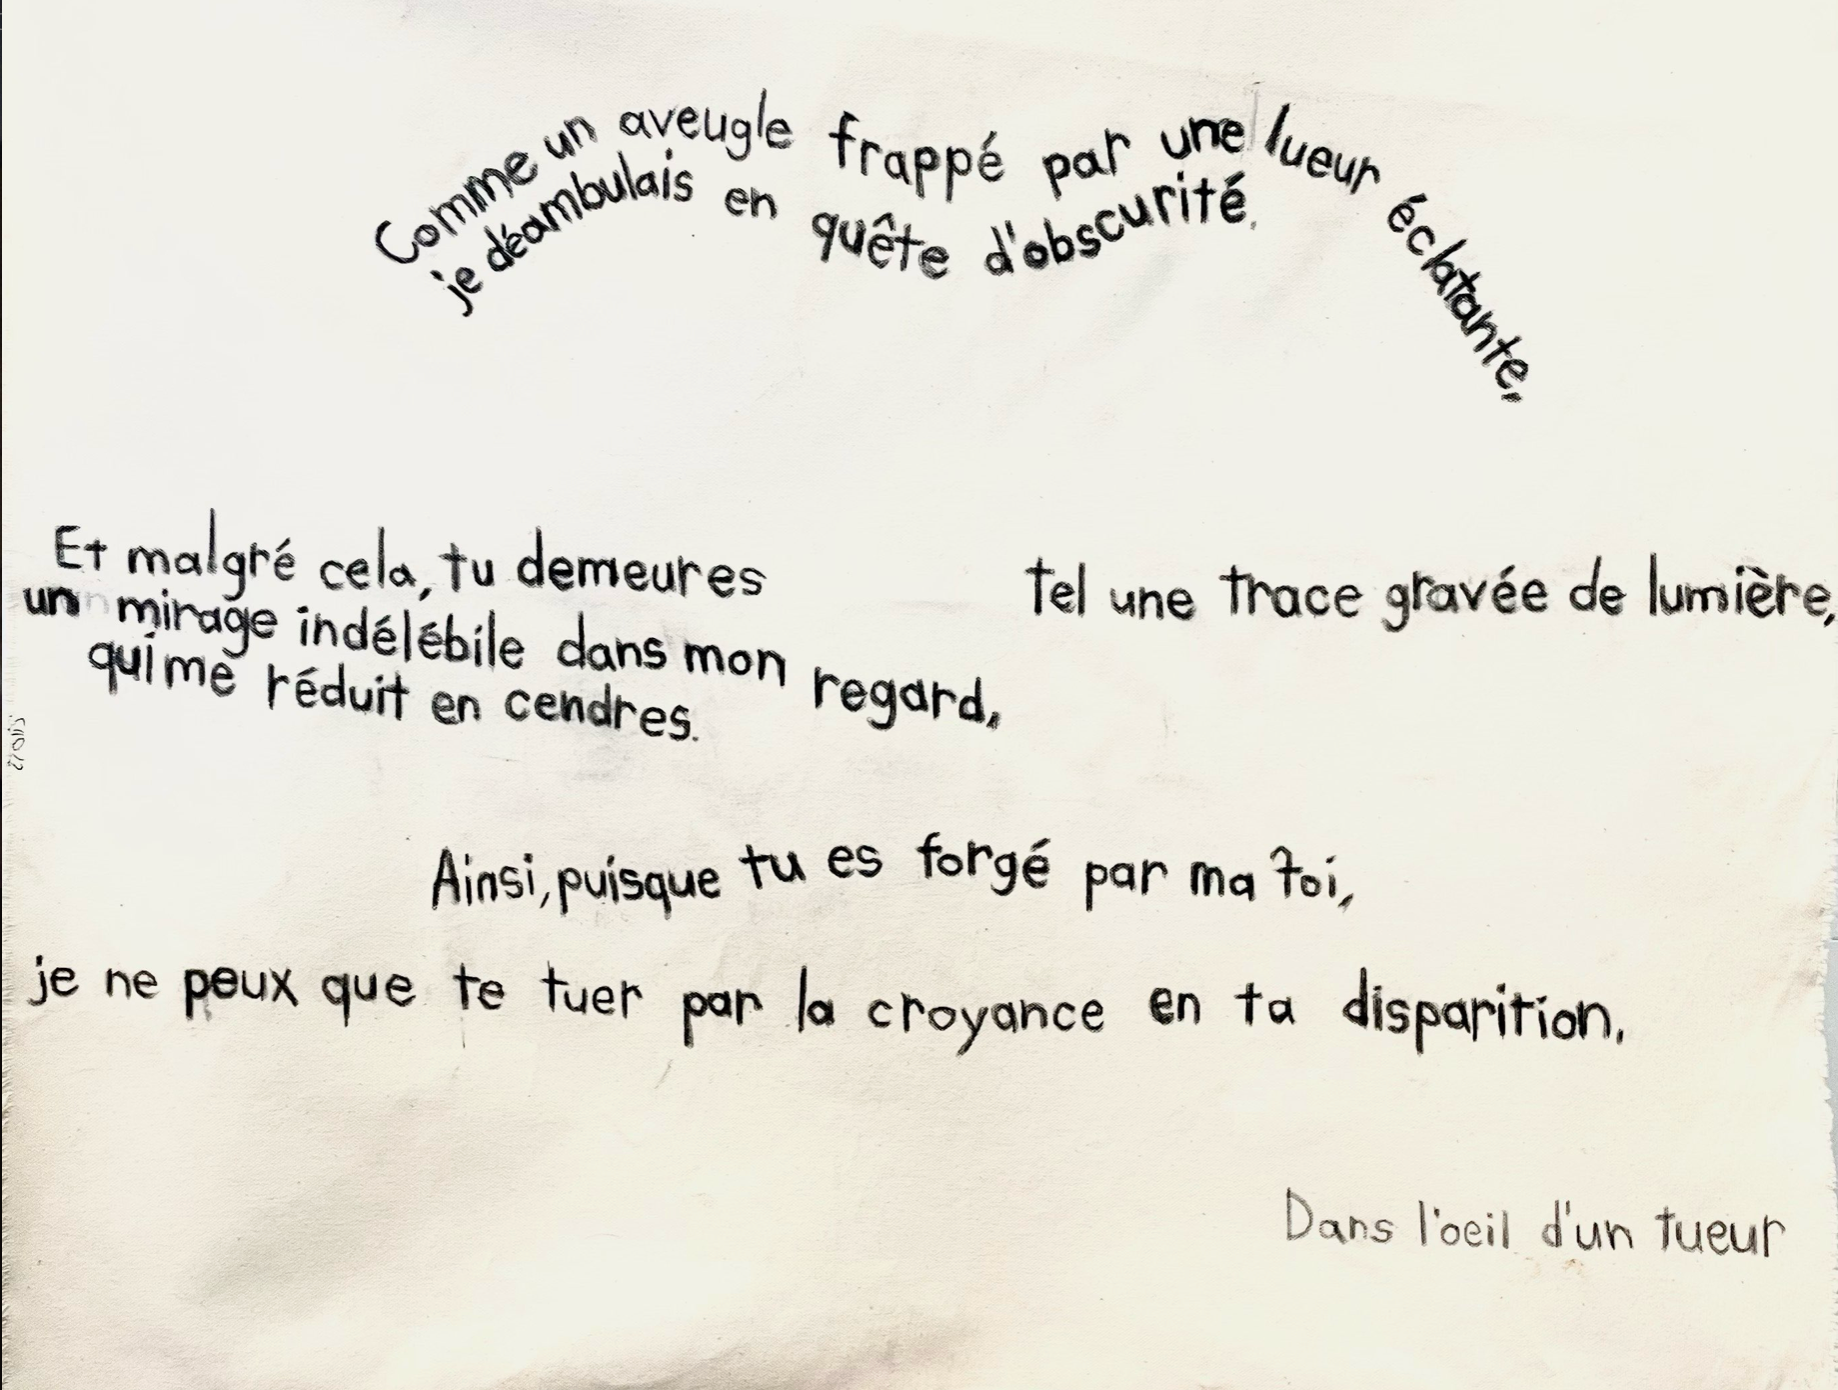 Comme un aveugle frappé par une lueur éclatante,
je déambulais en quête d'obscurité.
Et malgré cela, tu demeures tel une trace gravée de lumière,
un mirage indélébile dans mon regard,
qui me réduit en cendres.
Ainsi, puisque tu es forgé par ma foi,
je ne peux que te tuer par la croyance en ta disparition.
Dans l'oeil d'un tueur